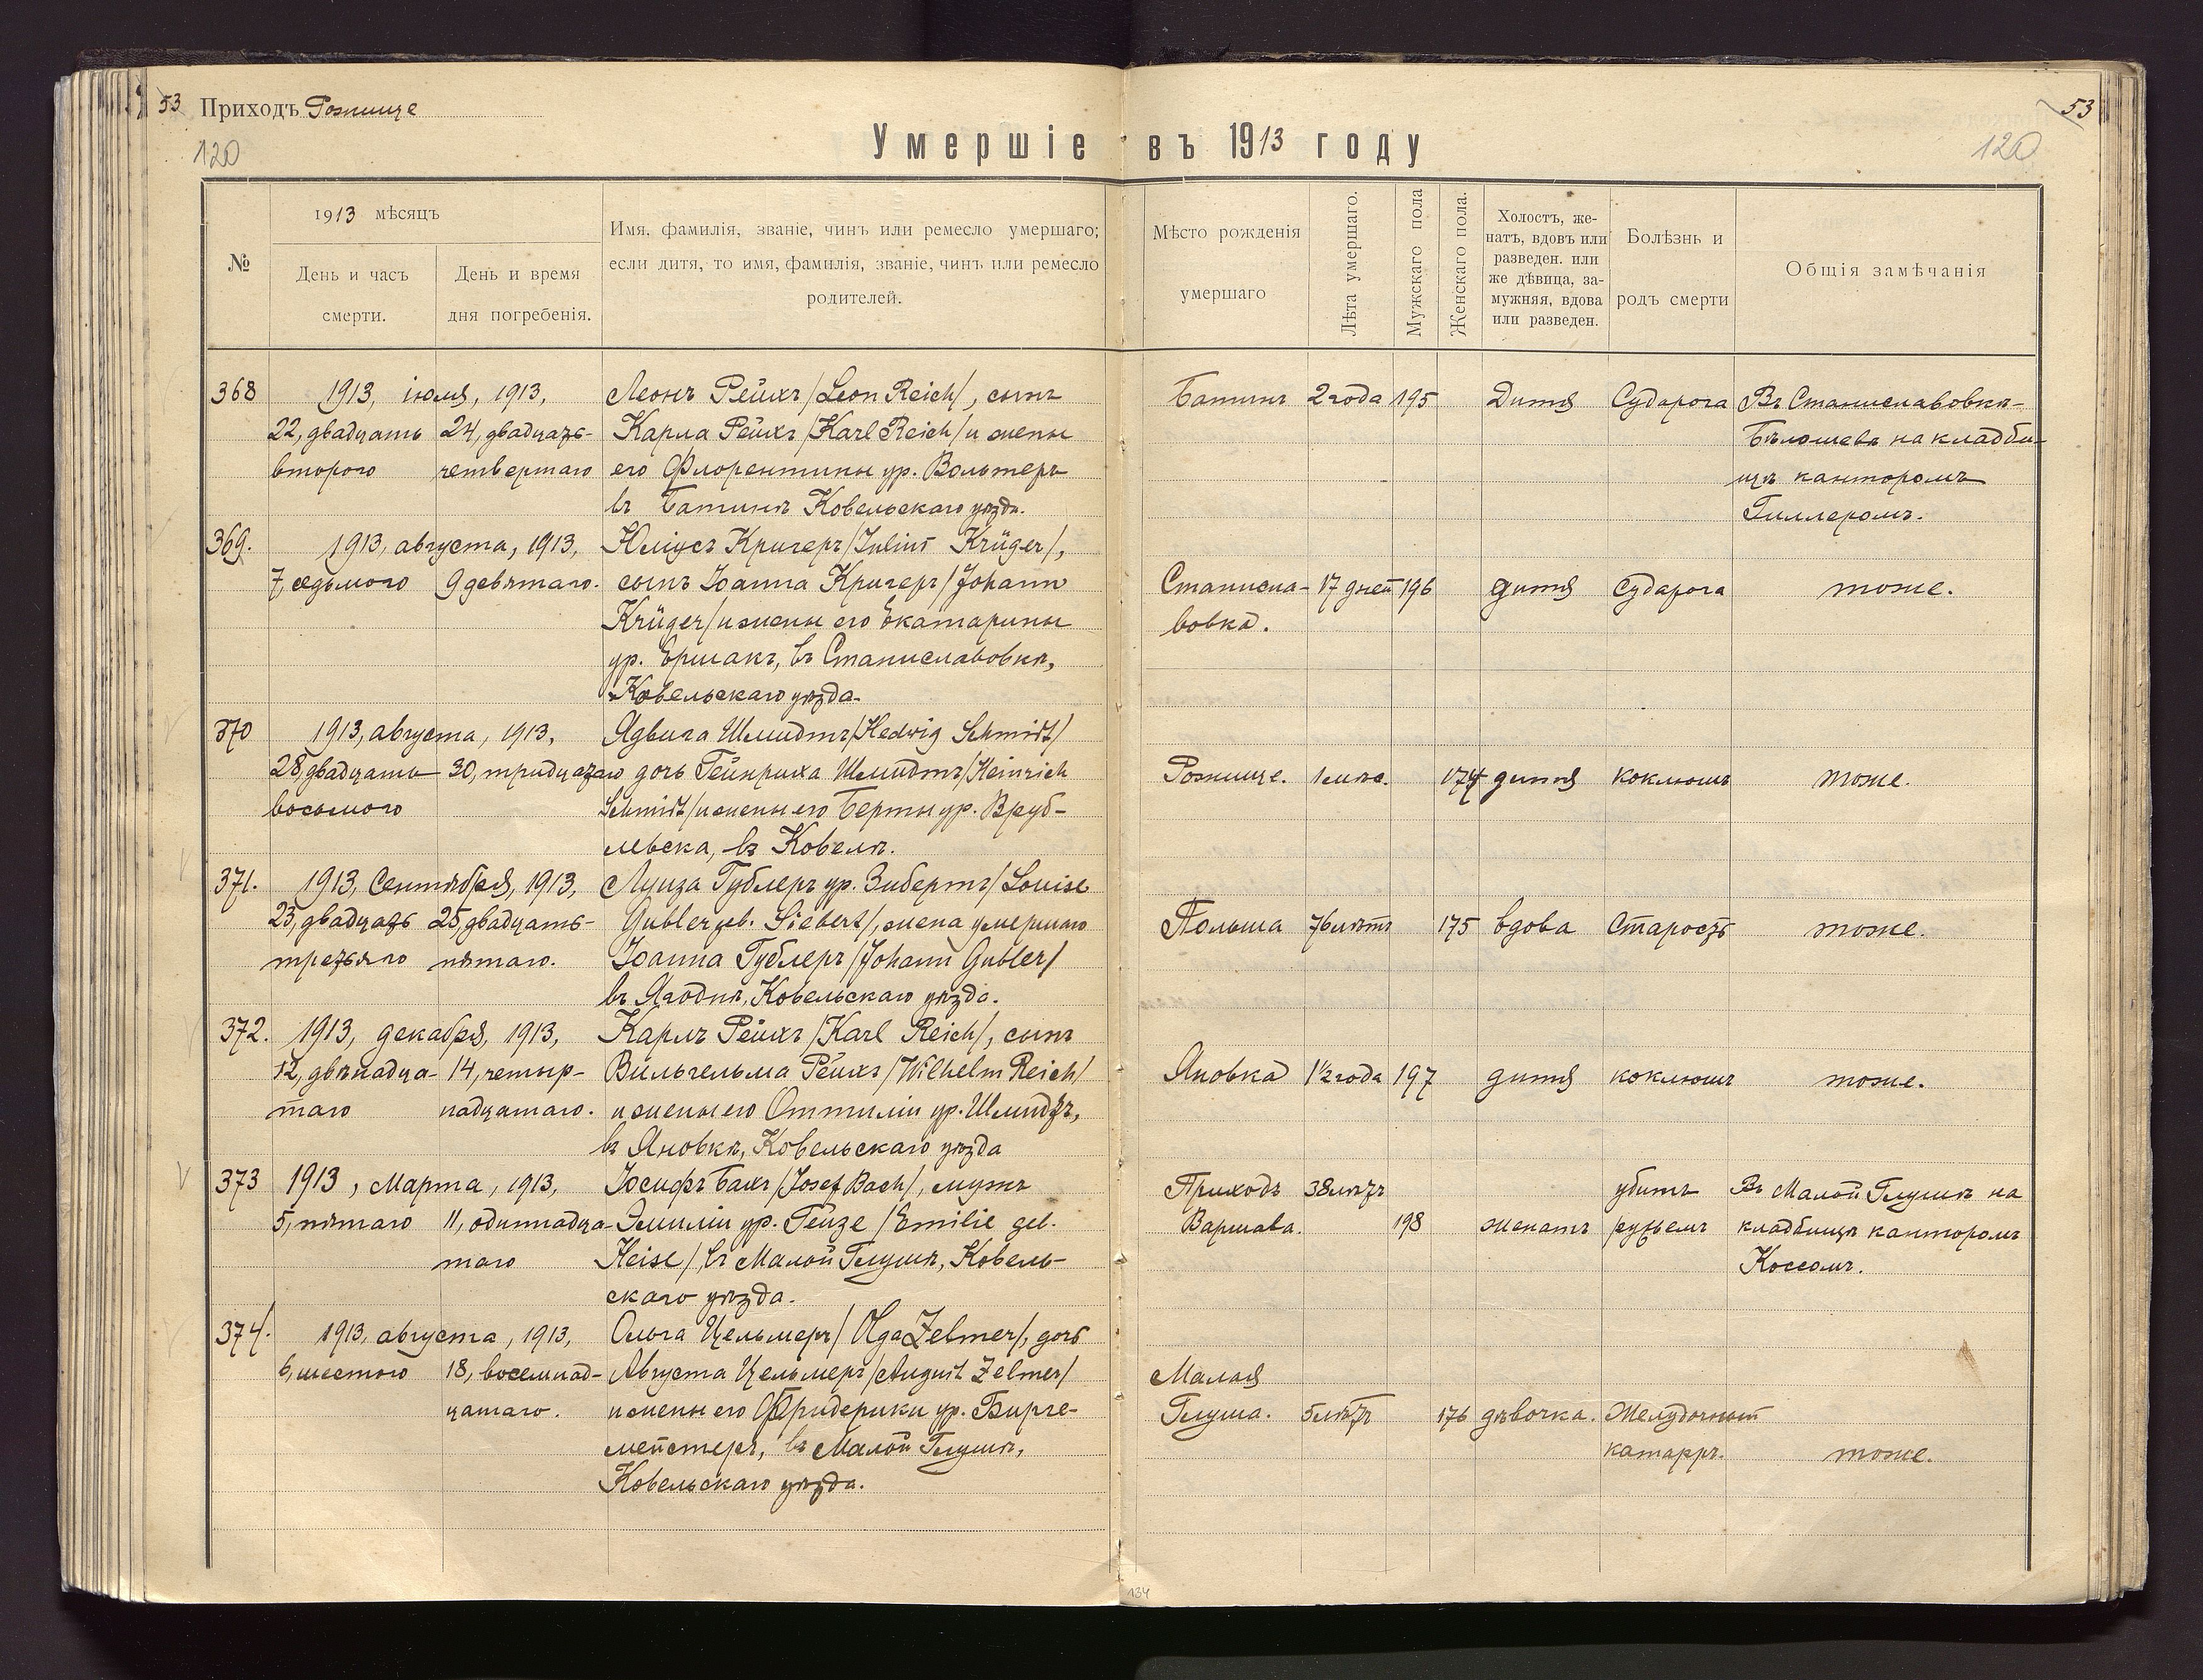 53 Приходъ Рожище
53
120
120
Умершіе въ 1913 году
№
1913 мѣсяцъ
День и часъ
смерти.
День и время
дня погребенія.
Имя, фамилія, званіе, чинъ или ремесло умершаго;
если дитя, то имя, фамилія, званіе, чинъ или ремесло
родителей.
Мѣсто рожденія
умершаго
Лѣта умершаго.
Мужскаго пола
Женскаго пола.
Холостъ, же-
натъ, вдовъ или
разведен. или
же дѣвица, за-
мужняя, вдова
или разведен.
Болѣзнь и
родъ смерти
Общія замѣчанія
368 1913, іюля, 1913, Леонъ Рейхъ /Leon Reich/, сынъ Батинъ 2 года 195 Дитя Судорога Въ Станиславовкѣ-
22, двадцать 24, двадцать- Карла Рейхъ /Karl Reich/ и жены на кладби-
второго четвертаго его Флорентины ур. Вольтеръ щѣ канторомъ
въ Батинѣ Ковельскаго уѣзда. Гиллеромъ.
369. 1913, августа, 1913, Юліусъ Кригеръ /Julius Krüger/,
7, седьмого 9 девятаго. сынъ Іоанна Кригеръ /Johann Станисла- 17 дней 196 дитя Судорога тоже.
Krüger/ и жены его Екатарины вовка.
ур. Ермакъ, въ Станиславовкѣ,
Ковельскаго уѣзда.
370 1913, августа, 1913, Ядвига Шмидтъ /Hedwig Schmidt/
28, двадцать 30, тридцатаго дочь Гейнриха Шмидтъ /Heinrich Рожище. 174 дитя коклюшъ тоже.
восьмого Schmidt/ и жены его Берты ур. Вруб-
левска, въ Ковелѣ.
371. 1913, Сентября, 1913, Луиза Гублеръ ур. Зибертъ /Louise
23, двадцать 25, двадцать- Gubler geb. Siebert/, жена умершаго Польша 76 лѣтъ 175 вдова Старость тоже.
третьяго пятаго. Іоанна Гублеръ /Johann Gubler/
въ Ягоднѣ, Ковельскаго уѣзда.
372. 1913, декабря, 1913, Карлъ Рейхъ /Karl Reich/, сынъ
12, двѣнадца- 14, четыр- Вильгельма Рейхъ /Wilhelm Reich/ Яновка 1½ года 197 дитя коклюшъ тоже.
таго надцатаго. и жены его Оттиліи ур. Шмидтъ,
въ Яновкѣ, Ковельскаго уѣзда
373 1913, Марта, 1913, Іосифъ Бахъ /Josef Bach/, мужъ Приходъ 38 лѣтъ убитъ Въ Малой Глушѣ на
5, пятаго 11, одиннадца- Эмиліи ур. Гейзе /Emilie geb. Варшава. 198 женатъ ружьемъ кладбищѣ канторомъ
таго Heise/, въ Малой Глушѣ, Ковель- Коссомъ.
скаго уѣзда.
374. 1913, августа, 1913, Ольга Цельмеръ /Olga Zelmer/, дочь
6, шестого 18, восемнад- Августа Цельмеръ /August Zelmer/ Малая
цатаго. и жены его Фридерики ур. Бирге- Глуша. 5 лѣтъ 176 дѣвочка. Желудочный
мейстеръ, въ Малой Глушѣ, катарръ. тоже.
Ковельскаго уѣзда.
134